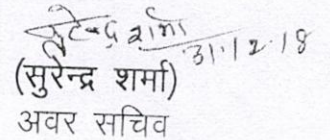 सुरेन्द्र शर्मा
31.12.18
(सुरेन्द्र शर्मा)
अवर सचिव